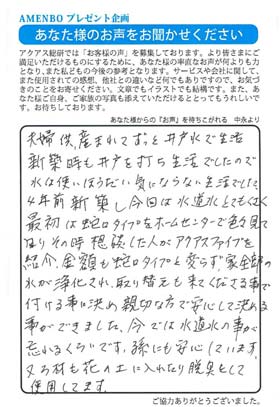 AMENBO プレゼント企画
あなた様のお声をお聞かせください
アクアス総研では「お客様の声」を募集しております。より皆さまにご
満足いただけるものにするために、あなた様の率直なお声が何よりも力
となり、また私どもの今後の参考となります。サービスや会社に関して、
また使用されての感想、他社との違いなど何でもありですので、お気づ
きのことをお寄せください。文章でもイラストでも結構です。また、あ
なた様ご自身、ご家族の写真も添えていただけるととってもうれしいで
す。お待ちしております。
あなた様からの『お声』を待ちこがれる 中永より
夫婦供、産まれてずっと井戸水で生活
新築時も井戸を打ち生活でしたので
水は使いほうだい 気にならない生活でした。
4年前新築し今回は水道水としてもくさく
最初は蛇口タイプをホームセンターで色々見て
おりその時、相談した人がアクアスファイブを
紹介、金額も蛇口タイプと変らず家全部の
水が浄化され、取り替えも来てくださる事で
付ける事に決め親切な方で安心して決める
事ができました。今では水道水の事が
忘れるくらいです。孫にも安心しています。
又ろ材も花の土に入れたり脱臭として
使用してます。
ご協力ありがとうございました。